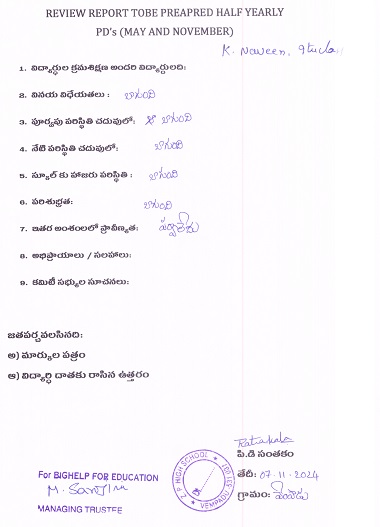 REVIEW REPORT TOBE PREAPRED HALF YEARLY
PD's (MAY AND NOVEMBER)
K. Naveen, 9th class
1. విద్యార్ధుల క్రమశిక్షణ అందరి విద్యార్ధులది:
2. వినయ విధేయతలు : బాగుంది
3. పూర్వపు పరిస్థితి చదువులో: బాగుంది
4. నేటి పరిస్థితి చదువులో: బాగుంది
5. స్కూల్ కు హాజరు పరిస్థితి : బాగుంది
6. పరిశుభ్రత: బాగుంది
7. ఇతర అంశంలలో ప్రావీణ్యత: పర్వాలేదు
8. అభిప్రాయాలు / సలహాలు:
9. కమిటీ సభ్యుల సూచనలు:
జతపర్చవలసినది:
అ) మార్కుల పత్రం
ఆ) విద్యార్థి దాతకు రాసిన ఉత్తరం
పి.డి సంతకం
For BIGHELP FOR EDUCATION
తేది: 07-11-2024
M. 
గ్రామం: వేంపాడు
MANAGING TRUSTEE
Z P HIGH SCHOOL
VEMPADU